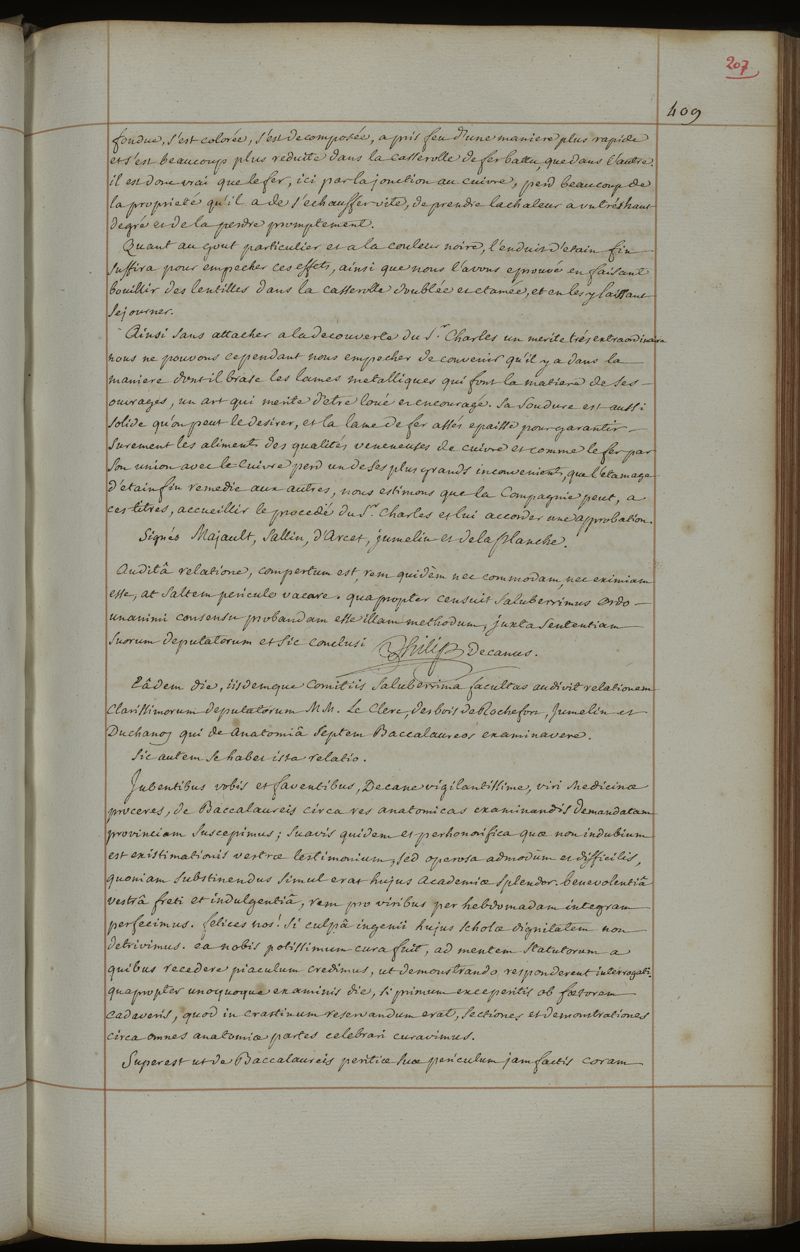 207
409
fondue, s'est colorée, s'est decomposée, a pris feu d'une maniere plus rapide
et s'est beaucoup plus reduite dans la casserolle de fer battu, que dans l'autre.
il est donc vrai que le fer, ici par la jonction au cuivre, perd beaucoup de
la proprieté qu'il a de s'echauffer vite, de prendre la chaleur a un trés haut
degré et de la perdre promptement.
Quant au gout particulier et a la couleur noire, l'enduit d'etain fin
suffira pour empecher ces effets, ainsi que nous l'avons eprouvé en faisant
bouillir des lentilles dans la casserolle doublée et etamée, et en les y laissant
sejourner.
Ainsi sans attacher a la decouverte du S.r Charles un merite trés extraordinaire
nous ne pouvons cependant nous empecher de convenir qu'il y a dans la
maniere dont il brase les lames metalliques qui font la matiere de ses
ouvrages, un art qui merite d'etre loué et encouragé. Sa soudure est aussi
solide qu'on peut le desirer, et la lame de fer assés epaisse pour garantir
surement les aliments des qualités veneneuses de cuivre et comme le fer par
son union avec le cuivre perd un de ses plus grands inconvenients, que l'etamage
d'etain fin remedie aux autres, nous estimons que la Compagnie peut, a
ces titres, accueillir le procedé du S.r Charles et lui accorder une approbation.
Signés Majault, Sallin, d'Arcet, jumelin et de la Planche.
Auditâ relatione, compertum est, rem quidèm nec commodam, nec eximiam
esse, at saltem periculo vacare. quapropter censuit saluberrimus ordo
unanimi consensu probandam esse illam methodum, juxta sententiam
suorum deputatorum et sic conclusi Philip Decanus.
Eâdem die, iisdemque Comitiis saluberrima facultas audivit relationem
clarissimorum deputatorum MM. Le Clerc, desbois de Rochefort, Jumelin et
Duchanoy qui de Anatomiâ septem Baccalaureos examinavere.
Sic autem se habet ista relatio.
Jubentibus vobis et faventibus, Decane vigilantissime, viri Medicinæ
proceres, de Baccalaureis circa res anatomicas examinandis demandatam
provinciam suscepimus; suavis quidem et perhonorifica quæ non indubium
est existimationis vestræ testimonium, sed operosa admodùm et difficilis,
quoniam substinendus simul erat hujus academiæ splendor. benevolentiâ
vestrâ freti et indulgentiâ, rem pro viribus per hebdomadam integram
perfecimus. felices nos! si culpâ ingenii hujus scholæ dignitatem non
detrivimus. ea nobis potissimum cura fuit, ad mentem statutorum a
quibus recedere piaculum credimus, ut demonstrando responderent interrogati.
quapropter unoquoque examinis die, si primum exceperitis ob fœtorem
cadaveris, quod in crastinum reservandum erat, sectiones et demonstrationes
circa omnes anatomiæ partes celebrari curavimus.
Superest ut de Baccalaureis peritiæ suæ periculum jam factis coram